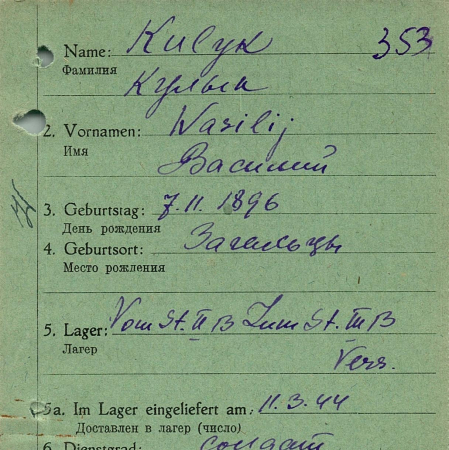 Name: Kulyk 353
Фамилия
Кулык
2. Vornamen: Wasilij
Имя
Василий
3. Geburtstag: 7.11.1896
День рождения
4. Geburtsort: Загельцы
Место рождения
5. Lager: Vom St. II B Zum St. III B
Лагер
Vers.
5a. Im Lager eingeliefert am: 11.3.44
Доставлен в лагер (число)
6. Dienstgrad: солдат